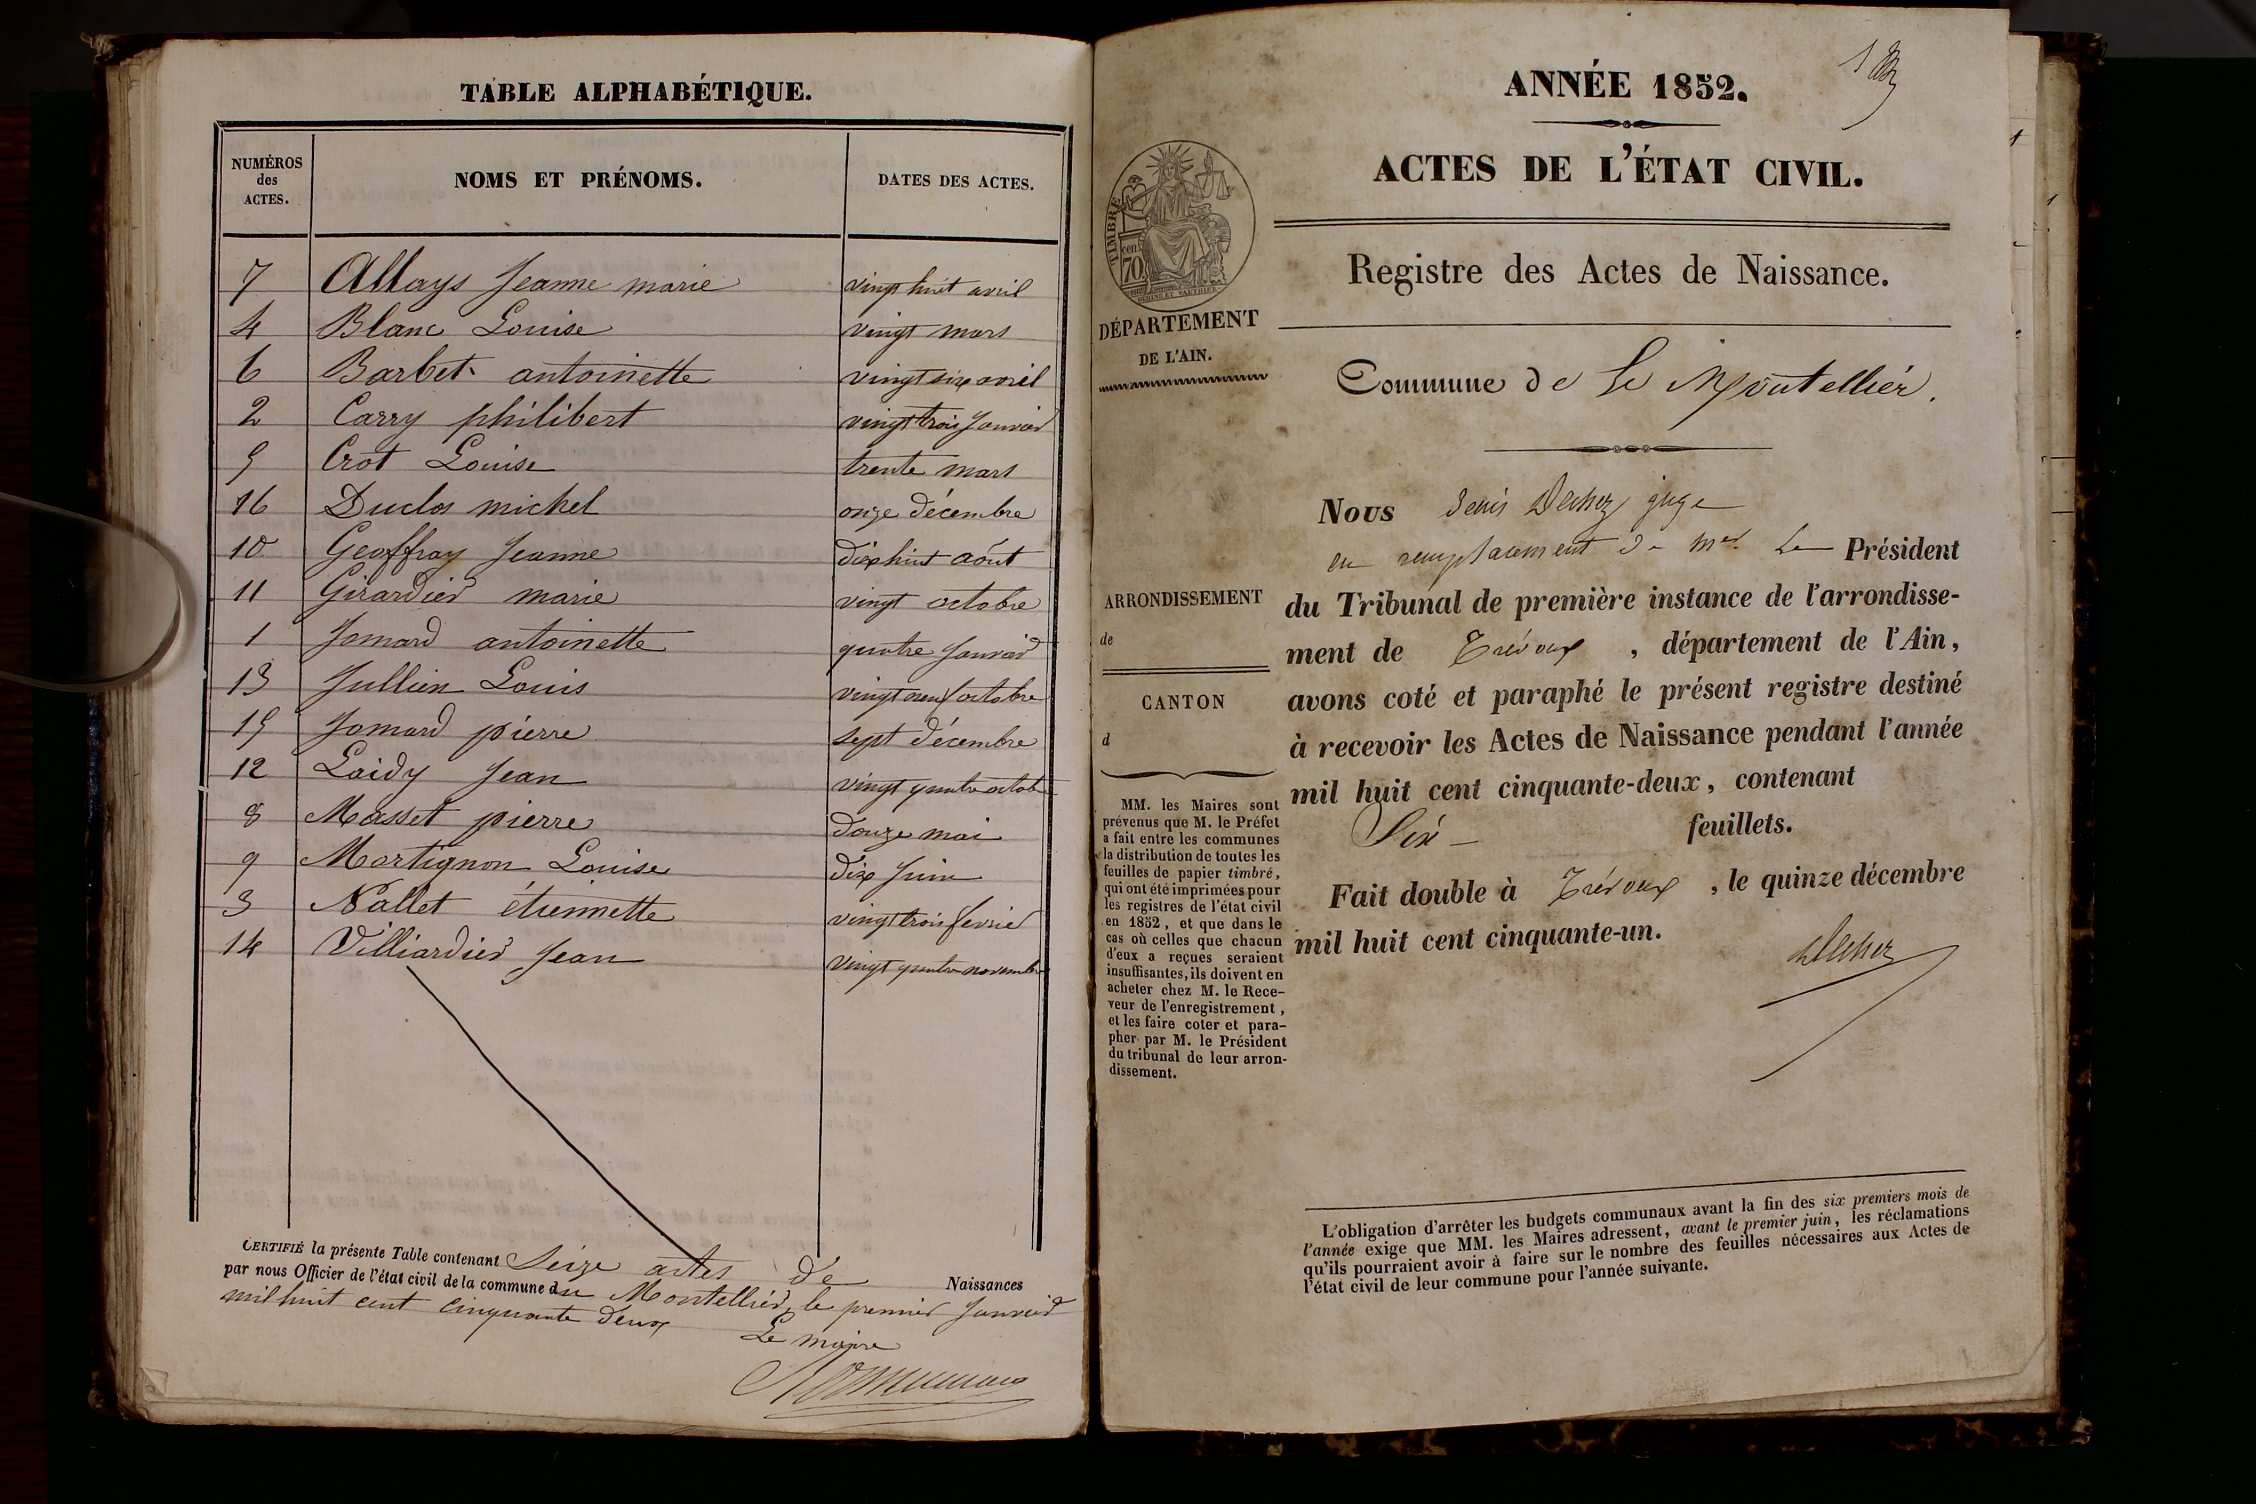 TABLE ALPHABÉTIQUE.
NUMÉROS
des
ACTES.
NOMS ET PRÉNOMS.
DATES DES ACTES.
7 Allays Jeanne marie vingt huit avril
4 Blanc Louise vingt mars
6 Barbet antoinette vingt six avril
2 Carry philibert vingt trois Janvier
5 Crot Louise trente mars
16 Duclos michel onze décembre
10 Geoffray Jeanne dix huit aôut
11 Girardier marie vingt octobre
1 Jomard antoinette quatre Janvier
13 Jullien Louis vingt neuf octobre
15 Jomard pierre sept décembre
12 Loidy Jean vingt quatre octob
8 Masset pierre douze mai
9 Martignon Louise dix Juin
3 Nallet étiennette vingt trois fevrier
14 Villiardier Jean vingt quatre novembre
CERTIFIÉ la présente Table contenant Seize actes de Naissances
par nous Officier de l'état civil de la commune du Montellier, le premier Janvier
mil huit cent cinquante deux
Le maire
ANNÉE 1852.
ACTES DE L'ÉTAT CIVIL.
Registre des Actes de Naissance.
TIMBRE
70 cen.
DÉPARTEMENT
DE L'AIN.
Commune de Le Montellier.
Nous Denis juge
en remplacement de Mr. Le Président
du Tribunal de première instance de l'arrondisse-
ment de Trévoux, département de l'Ain,
avons coté et paraphé le présent registre destiné
à recevoir les Actes de Naissance pendant l'année
mil huit cent cinquante-deux, contenant
Six feuillets.
Fait double à Trévoux, le quinze décembre
mil huit cent cinquante-un.
ARRONDISSEMENT
de
CANTON
d
MM. les Maires sont
prévenus que M. le Préfet
a fait entre les communes
la distribution de toutes les
feuilles de papier timbré,
qui ont été imprimées pour
les registres de l'état civil
en 1852, et que dans le
cas où celles que chacun
d'eux a reçues seraient
insuffisantes, ils doivent en
acheter chez M. le Rece-
veur de l'enregistrement,
et les faire coter et para-
pher par M. le Président
du tribunal de leur arron-
dissement.
L'obligation d'arrêter les budgets communaux avant la fin des six premiers mois de
l'année exige que MM. les Maires adressent, avant le premier juin, les réclamations
qu'ils pourraient avoir à faire sur le nombre des feuilles nécessaires aux Actes de
l'état civil de leur commune pour l'année suivante.